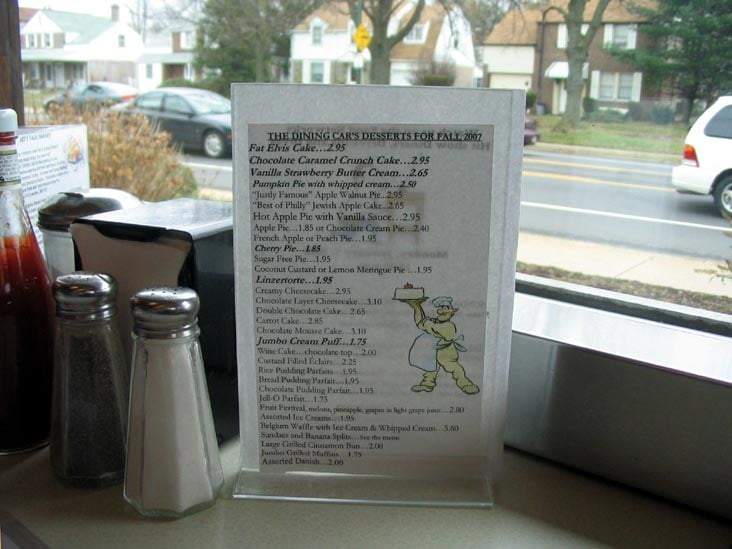 THE DINING CAR'S DESSERTS FOR FALL 2007
Fat Elvis Cake...2.95
Chocolate Caramel Crunch Cake...2.95
Vanilla Strawberry Butter Cream...2.65
Pumpkin Pie with whipped cream...2.50
"Justly Famous" Apple Walnut Pie...2.95
"Best of Philly" Jewish Apple Cake...2.65
Hot Apple Pie with Vanilla Sauce...2.95
Apple Pie...1.85 or Chocolate Cream Pie...2.40
French Apple or Peach Pie...1.95
Cherry Pie...1.85
Sugar Free Pie...1.95
Coconut Custard or Lemon Meringue Pie ...1.95
Linzertorte...1.95
Creamy Cheesecake...2.95
Chocolate Layer Cheesecake...3.10
Double Chocolate Cake...2.65
Carrot Cake...2.85
Chocolate Mousse Cake...3.10
Jumbo Cream Puff...1.75
Wine Cake...chocolate top...2.00
Custard Filled Éclairs...2.25
Rice Pudding Parfaits...1.95
Bread Pudding Parfait...1.95
Chocolate Pudding Parfait...1.95
Jell-O Parfait...1.75
Fruit Festival, melons, pineapple, grapes in light grape juice...2.80
Assorted Ice Creams...1.95
Belgium Waffle with Ice Cream & Whipped Cream...5.60
Sundaes and Banana Splits...See the menu
Large Grilled Cinnamon Bun...2.00
Jumbo Grilled Muffins...1.75
Assorted Danish...2.00